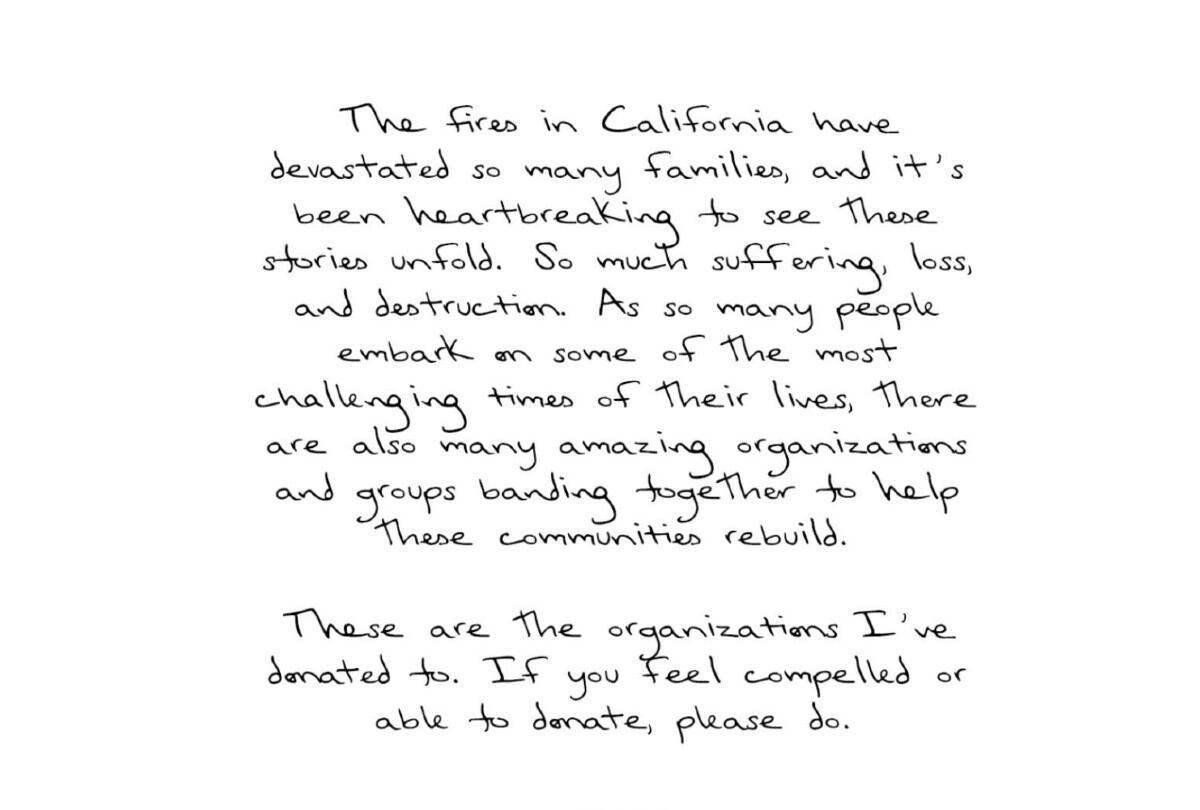 The fires in California have
devastated so many families, and it's
been heartbreaking to see these
stories unfold. So much suffering, loss,
and destruction. As so many people
embark on some of the most
challenging times of their lives, there
are also many amazing organizations
and groups banding together to help
these communities rebuild.
These are the organizations I've
donated to. If you feel compelled or
able to donate, please do.